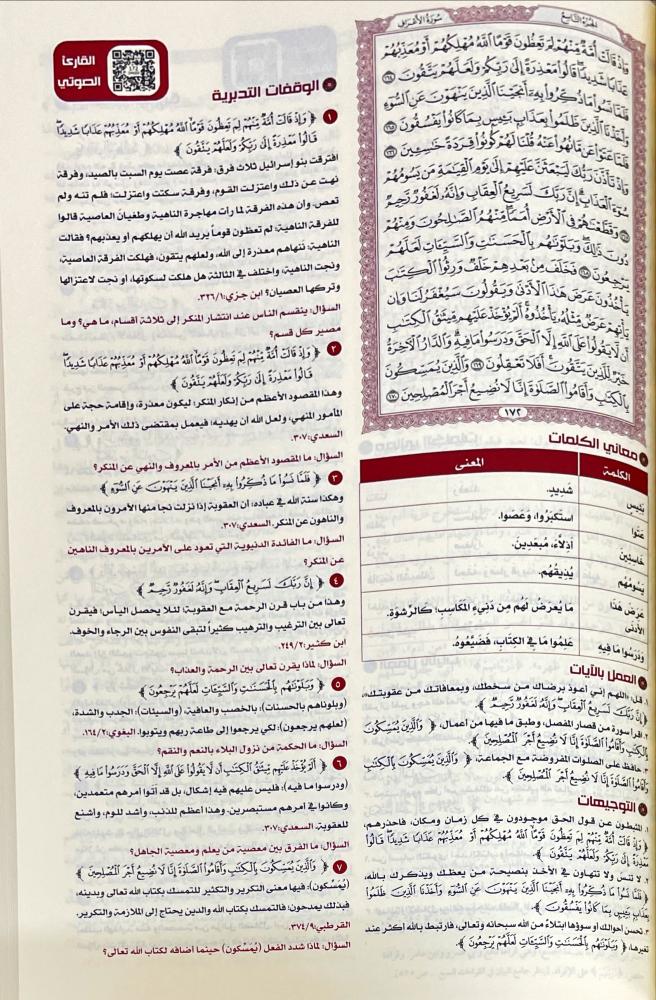 الجزء التاسع
سورة الأعراف
وَإِذْ قَالَتْ أُمَّةٌ مِّنْهُمْ لِمَ تَعِظُونَ قَوْمًا اللَّهُ مُهْلِكُهُمْ أَوْ مُعَذِّبُهُمْ
عَذَابًا شَدِيدًا قَالُوا مَعْذِرَةً إِلَىٰ رَبِّكُمْ وَلَعَلَّهُمْ يَتَّقُونَ ١٦٤
فَلَمَّا نَسُوا مَا ذُكِّرُوا بِهِ أَنجَيْنَا الَّذِينَ يَنْهَوْنَ عَنِ السُّوءِ
وَأَخَذْنَا الَّذِينَ ظَلَمُوا بِعَذَابٍ بَئِيسٍ بِمَا كَانُوا يَفْسُقُونَ ١٦٥
فَلَمَّا عَتَوْا عَن مَّا نُهُوا عَنْهُ قُلْنَا لَهُمْ كُونُوا قِرَدَةً خَاسِئِينَ ١٦٦
وَإِذْ تَأَذَّنَ رَبُّكَ لَيَبْعَثَنَّ عَلَيْهِمْ إِلَىٰ يَوْمِ الْقِيَامَةِ مَن يَسُومُهُمْ
سُوءَ الْعَذَابِ إِنَّ رَبَّكَ لَسَرِيعُ الْعِقَابِ وَإِنَّهُ لَغَفُورٌ رَّحِيمٌ
١٦٧ وَقَطَّعْنَاهُمْ فِي الْأَرْضِ أُمَمًا مِّنْهُمُ الصَّالِحُونَ وَمِنْهُمْ
دُونَ ذَٰلِكَ وَبَلَوْنَاهُم بِالْحَسَنَاتِ وَالسَّيِّئَاتِ لَعَلَّهُمْ
يَرْجِعُونَ ١٦٨ فَخَلَفَ مِن بَعْدِهِمْ خَلْفٌ وَرِثُوا الْكِتَابَ
يَأْخُذُونَ عَرَضَ هَٰذَا الْأَدْنَىٰ وَيَقُولُونَ سَيُغْفَرُ لَنَا وَإِن
يَأْتِهِمْ عَرَضٌ مِّثْلُهُ يَأْخُذُوهُ أَلَمْ يُؤْخَذْ عَلَيْهِم مِّيثَاقُ الْكِتَابِ
أَن لَّا يَقُولُوا عَلَى اللَّهِ إِلَّا الْحَقَّ وَدَرَسُوا مَا فِيهِ وَالدَّارُ الْآخِرَةُ
خَيْرٌ لِّلَّذِينَ يَتَّقُونَ أَفَلَا تَعْقِلُونَ ١٦٩ وَالَّذِينَ يُمَسِّكُونَ
بِالْكِتَابِ وَأَقَامُوا الصَّلَاةَ إِنَّا لَا نُضِيعُ أَجْرَ الْمُصْلِحِينَ ١٧٠
١٧٢
معاني الكلمات
الكلمة المعنى
بَئِيسٍ شَدِيدٍ.
عَتَوْا اسْتَكْبَرُوا، وَعَصَوْا.
خَاسِئِينَ أَذِلَّاءَ، مُبْعَدِينَ.
يَسُومُهُمْ يُذِيقُهُمْ.
عَرَضَ هَذَا
الأَدْنَى
مَا يُعْرَضُ لَهُمْ مِنْ دَنِيءِ الْمَكَاسِبِ؛ كَالرِّشْوَةِ.
وَدَرَسُوا مَا فِيهِ عَلِمُوا مَا فِي الْكِتَابِ، فَضَيَّعُوهُ.
العمل بالآيات
١. قل: «اللهم إني أعوذ برضاك من سخطك، وبمعافاتك من عقوبتك»،
﴿إِنَّ رَبَّكَ لَسَرِيعُ الْعِقَابِ وَإِنَّهُ لَغَفُورٌ رَّحِيمٌ﴾.
٢. اقرأ سورة من قصار المفصل، وطبق ما فيها من أعمال، ﴿وَالَّذِينَ يُمَسِّكُونَ
بِالْكِتَابِ وَأَقَامُوا الصَّلَاةَ إِنَّا لَا نُضِيعُ أَجْرَ الْمُصْلِحِينَ﴾.
٣. حافظ على الصلوات المفروضة مع الجماعة، ﴿وَالَّذِينَ يُمَسِّكُونَ بِالْكِتَابِ
وَأَقَامُوا الصَّلَاةَ إِنَّا لَا نُضِيعُ أَجْرَ الْمُصْلِحِينَ﴾.
التوجيهات
١. المثبطون عن قول الحق موجودون في كل زمان ومكان، فاحذرهم،
﴿وَإِذْ قَالَتْ أُمَّةٌ مِّنْهُمْ لِمَ تَعِظُونَ قَوْمًا اللَّهُ مُهْلِكُهُمْ أَوْ مُعَذِّبُهُمْ عَذَابًا شَدِيدًا قَالُوا
مَعْذِرَةً إِلَىٰ رَبِّكُمْ وَلَعَلَّهُمْ يَتَّقُونَ﴾.
٢. لا تنس ولا تتهاون في الأخذ بنصيحة من يعظك ويذكرك بالله،
﴿فَلَمَّا نَسُوا مَا ذُكِّرُوا بِهِ أَنجَيْنَا الَّذِينَ يَنْهَوْنَ عَنِ السُّوءِ وَأَخَذْنَا الَّذِينَ ظَلَمُوا
بِعَذَابٍ بَئِيسٍ بِمَا كَانُوا يَفْسُقُونَ﴾.
٣. تحسن أحوالك أو سوؤها ابتلاء من الله سبحانه وتعالى، فارتبط بالله أكثر عند
تغيرها، ﴿وَبَلَوْنَاهُم بِالْحَسَنَاتِ وَالسَّيِّئَاتِ لَعَلَّهُمْ يَرْجِعُونَ﴾.
القارئ
الصوتي
الوقفات التدبرية
١ ﴿وَإِذْ قَالَتْ أُمَّةٌ مِّنْهُمْ لِمَ تَعِظُونَ قَوْمًا اللَّهُ مُهْلِكُهُمْ أَوْ مُعَذِّبُهُمْ عَذَابًا شَدِيدًا
قَالُوا مَعْذِرَةً إِلَىٰ رَبِّكُمْ وَلَعَلَّهُمْ يَتَّقُونَ﴾
افترقت بنو إسرائيل ثلاث فرق: فرقة عصت يوم السبت بالصيد، وفرقة
نهت عن ذلك واعتزلت القوم، وفرقة سكتت واعتزلت؛ فلم تنه ولم
تعص، وأن هذه الفرقة لما رأت مهاجرة الناهية وطغيان العاصية قالوا
للفرقة الناهية: لم تعظون قوماً يريد الله أن يهلكهم أو يعذبهم؟ فقالت
الناهية: ننهاهم معذرة إلى الله، ولعلهم يتقون، فهلكت الفرقة العاصية،
ونجت الناهية، واختلف في الثالثة هل هلكت لسكوتها، أو نجت لاعتزالها
وتركها العصيان؟ ابن جزي:٣٢٦/١.
السؤال: ينقسم الناس عند انتشار المنكر إلى ثلاثة أقسام، ما هي؟ وما
مصير كل قسم؟
٢ ﴿وَإِذْ قَالَتْ أُمَّةٌ مِّنْهُمْ لِمَ تَعِظُونَ قَوْمًا اللَّهُ مُهْلِكُهُمْ أَوْ مُعَذِّبُهُمْ عَذَابًا شَدِيدًا
قَالُوا مَعْذِرَةً إِلَىٰ رَبِّكُمْ وَلَعَلَّهُمْ يَتَّقُونَ﴾
وهذا المقصود الأعظم من إنكار المنكر؛ ليكون معذرة، وإقامة حجة على
المأمور المنهي، ولعل الله أن يهديه؛ فيعمل بمقتضى ذلك الأمر والنهي.
السعدي:٣٠٧.
السؤال: ما المقصود الأعظم من الأمر بالمعروف والنهي عن المنكر؟
٣ ﴿فَلَمَّا نَسُوا مَا ذُكِّرُوا بِهِ أَنجَيْنَا الَّذِينَ يَنْهَوْنَ عَنِ السُّوءِ﴾
وهكذا سنة الله في عباده: أن العقوبة إذا نزلت نجا منها الآمرون بالمعروف
والناهون عن المنكر. السعدي:٣٠٧.
السؤال: ما الفائدة الدنيوية التي تعود على الآمرين بالمعروف الناهين
عن المنكر؟
٤ ﴿إِنَّ رَبَّكَ لَسَرِيعُ الْعِقَابِ وَإِنَّهُ لَغَفُورٌ رَّحِيمٌ﴾
وهذا من باب قرن الرحمة مع العقوبة؛ لئلا يحصل اليأس؛ فيقرن
تعالى بين الترغيب والترهيب كثيراً لتبقى النفوس بين الرجاء والخوف.
ابن كثير:٢٤٩/٢.
السؤال: لماذا يقرن تعالى بين الرحمة والعذاب؟
٥ ﴿وَبَلَوْنَاهُم بِالْحَسَنَاتِ وَالسَّيِّئَاتِ لَعَلَّهُمْ يَرْجِعُونَ﴾
(وبلوناهم بالحسنات): بالخصب والعافية، (والسيئات): الجدب والشدة،
(لعلهم يرجعون): لكي يرجعوا إلى طاعة ربهم ويتوبوا. البغوي:١٦٤/٢.
السؤال: ما الحكمة من نزول البلاء بالنعم والنقم؟
٦ ﴿أَلَمْ يُؤْخَذْ عَلَيْهِم مِّيثَاقُ الْكِتَابِ أَن لَّا يَقُولُوا عَلَى اللَّهِ إِلَّا الْحَقَّ وَدَرَسُوا مَا فِيهِ﴾
(ودرسوا ما فيه): فليس عليهم فيه إشكال، بل قد أتوا أمرهم متعمدين،
وكانوا في أمرهم مستبصرين. وهذا أعظم للذنب، وأشد للوم، وأشنع
للعقوبة. السعدي:٣٠٧.
السؤال: ما الفرق بين معصية من يعلم ومعصية الجاهل؟
٧ ﴿وَالَّذِينَ يُمَسِّكُونَ بِالْكِتَابِ وَأَقَامُوا الصَّلَاةَ إِنَّا لَا نُضِيعُ أَجْرَ الْمُصْلِحِينَ﴾
(يُمَسِّكون): فيها معنى التكرير والتكثير للتمسك بكتاب الله تعالى وبدينه،
فبذلك يمدحون؛ فالتمسك بكتاب الله والدين يحتاج إلى الملازمة والتكرير.
القرطبي:٣٧٤/٩.
السؤال: لماذا شدد الفعل (يُمَسِّكون) حينما أضافه لكتاب الله تعالى؟